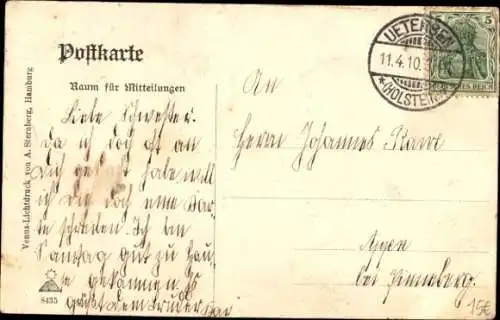 Postkarte
Raum für Mitteilungen
Liebe Schwester.
da ich doch oft an
Dich gedacht habe will
ich Dir doch eine Kar-
te schreiben. Ich bin
Sonntag gut zu Hau-
se gekommen. Es
grüßt dein Bruder
Venus-Lichtdruck von A. Sternberg, Hamburg
8435
UETERSEN
11.4.10.
*(HOLSTEIN)
5 5
DEUTSCHES REICH
An
Herrn Johannes
Appen
bei Pinneberg.
15€